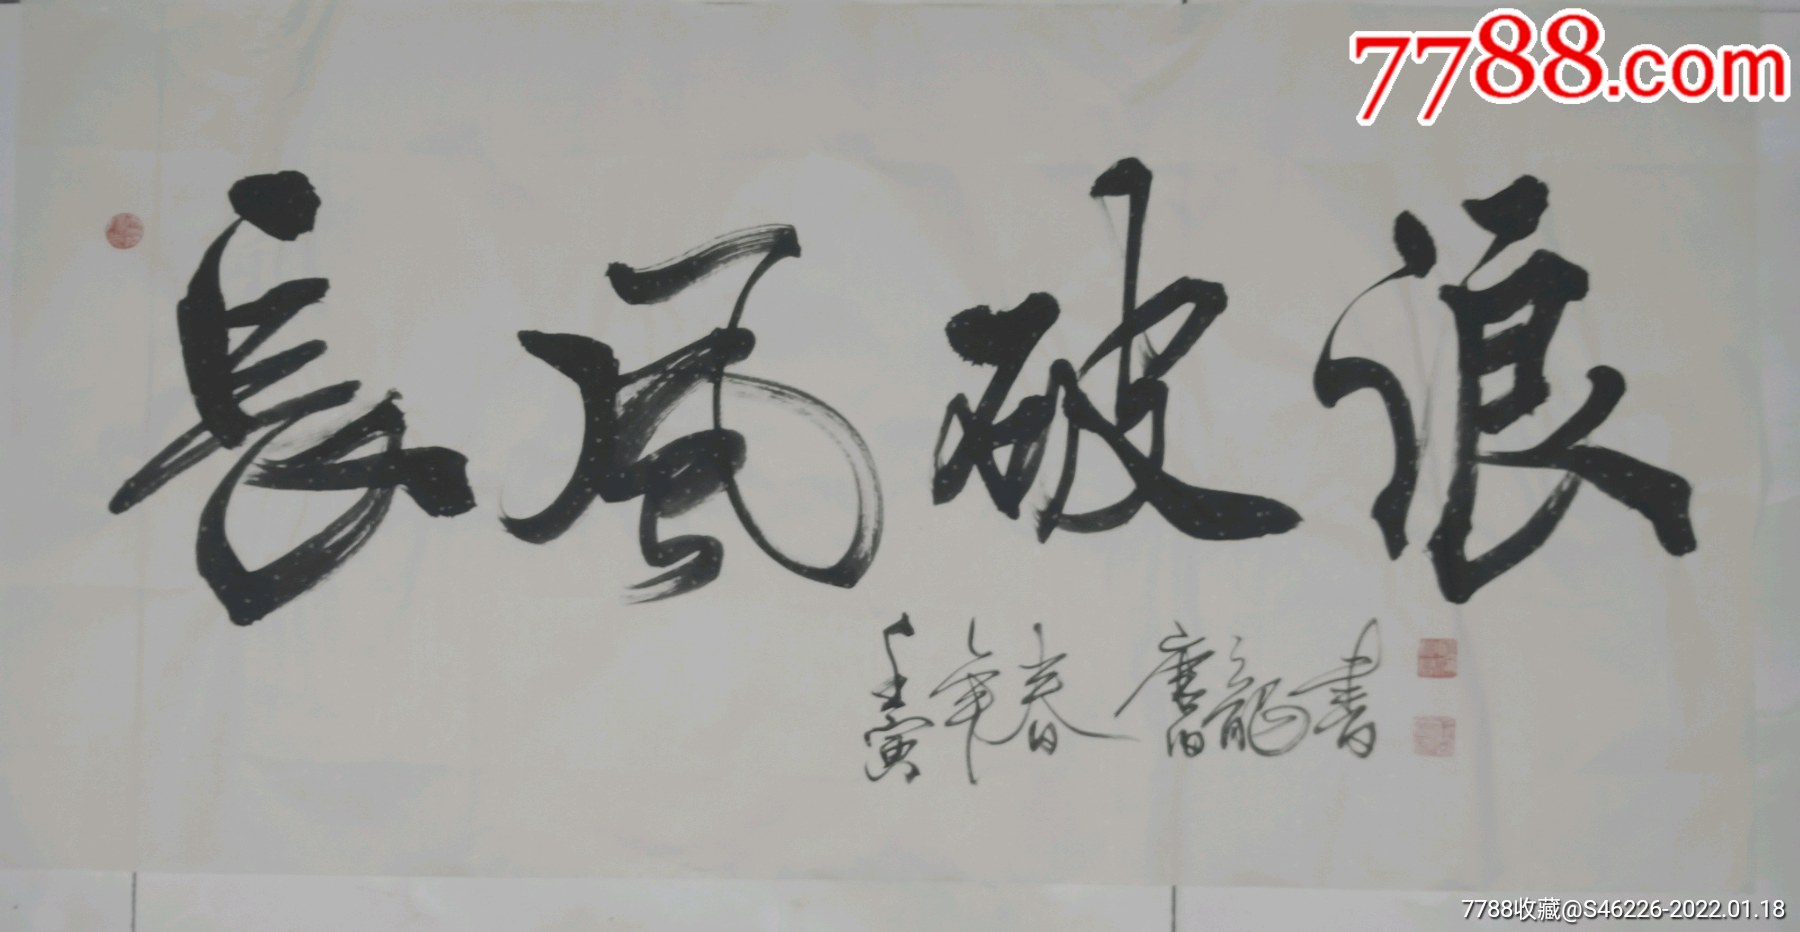 7788.com
長風破浪
壬寅年春 唐龍書
7788收藏@S46226-2022.01.18